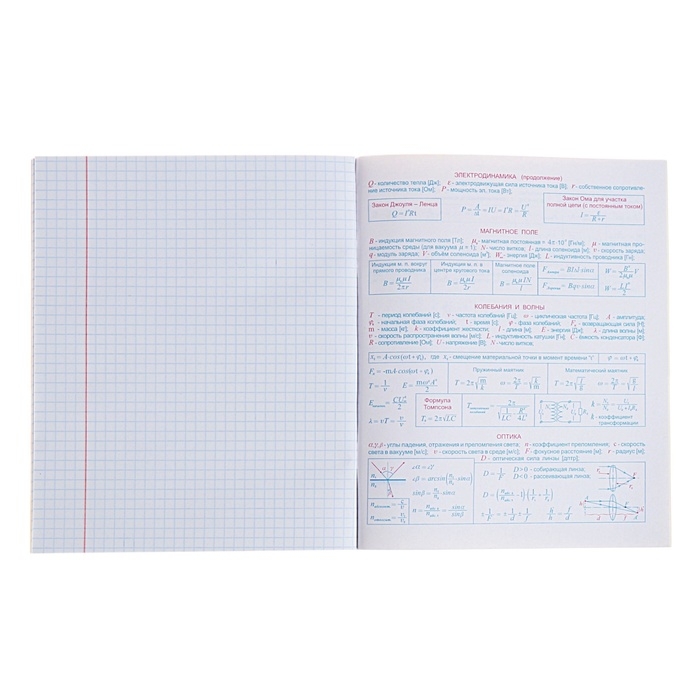 ЭЛЕКТРОДИНАМИКА (продолжение)
Q - количество тепла [Дж]; ε - электродвижущая сила источника тока [В]; r - собственное сопротивле-
ние источника тока [Ом]; P - мощность эл. тока [Вт].
Закон Джоуля – Ленца
Q = I²Rt
P = A/t = IU = I²R = U²/R
Закон Ома для участка
полной цепи (с постоянным током)
I = ε/(R + r)
МАГНИТНОЕ ПОЛЕ
B - индукция магнитного поля [Тл]; μ₀ - магнитная постоянная = 4π·10⁻⁷ [Гн/м]; μ - магнитная про-
ницаемость среды (для вакуума μ = 1); N - число витков; l - длина соленоида [м]; v - скорость заряда;
q - модуль заряда; V - объём соленоида [м³]; W - энергия [Дж]; L - индуктивность проводника [Гн].
Индукция м. п. вокруг
прямого проводника
B = μ₀μI/2πr
Индукция м. п. в
центре кругового тока
B = μ₀μI/2r
Магнитное поле
соленоида
B = μ₀μIN/l
F = BIsl·sinα
F = Bqv·sinα
W = B²/2μ₀μ V
W = LI²/2
КОЛЕБАНИЯ И ВОЛНЫ
T - период колебаний [с]; ν - частота колебаний [Гц]; ω - циклическая частота [Гц]; A - амплитуда;
φ₀ - начальная фаза колебаний; t - время [с]; φ - фаза колебаний; F - возвращающая сила [Н]
m - масса [кг]; k - коэффициент жесткости; l - длина [м]; E - энергия [Дж]; λ - длина волны [м];
v - скорость распространения волны [м/с]; L - индуктивность катушки [Гн]; C - ёмкость конденсатора [Ф]
R - сопротивление [Ом]; U - напряжение [В]; N - число витков;
= A·cos(ωt + φ₀), где - смещение материальной точки в момент времени "t" φ = ωt + φ₀
= -mA·cos(ωt + φ₀)
T = 1/ν E = mω²A²/2
Пружинный маятник
T = 2π√(m/k) ω = 2π/T = √(k/m)
Математический маятник
T = 2π√(l/g) ω = 2π/T = √(g/l)
= CU²/2
λ = vT = v/ν
Формула
Томпсона
T₀ = 2π√LC
= 2π/√(1/LC - R²/4L²)
k - коэффициент
трансформации
ОПТИКА
α,γ,β - углы падения, отражения и преломления света; n - коэффициент преломления; c - скорость
света в вакууме [м/с]; v - скорость света в среде [м/с]; F - фокусное расстояние [м]; r - радиус [м].
D - оптическая сила линзы [дптр].
∠α = ∠γ
∠β = arcsin(n₁/n₂ ·sinα)
sinβ = n₁/n₂ ·sinα
D = 1/F
D>0 - собирающая линза;
D<0 - рассеивающая линза;